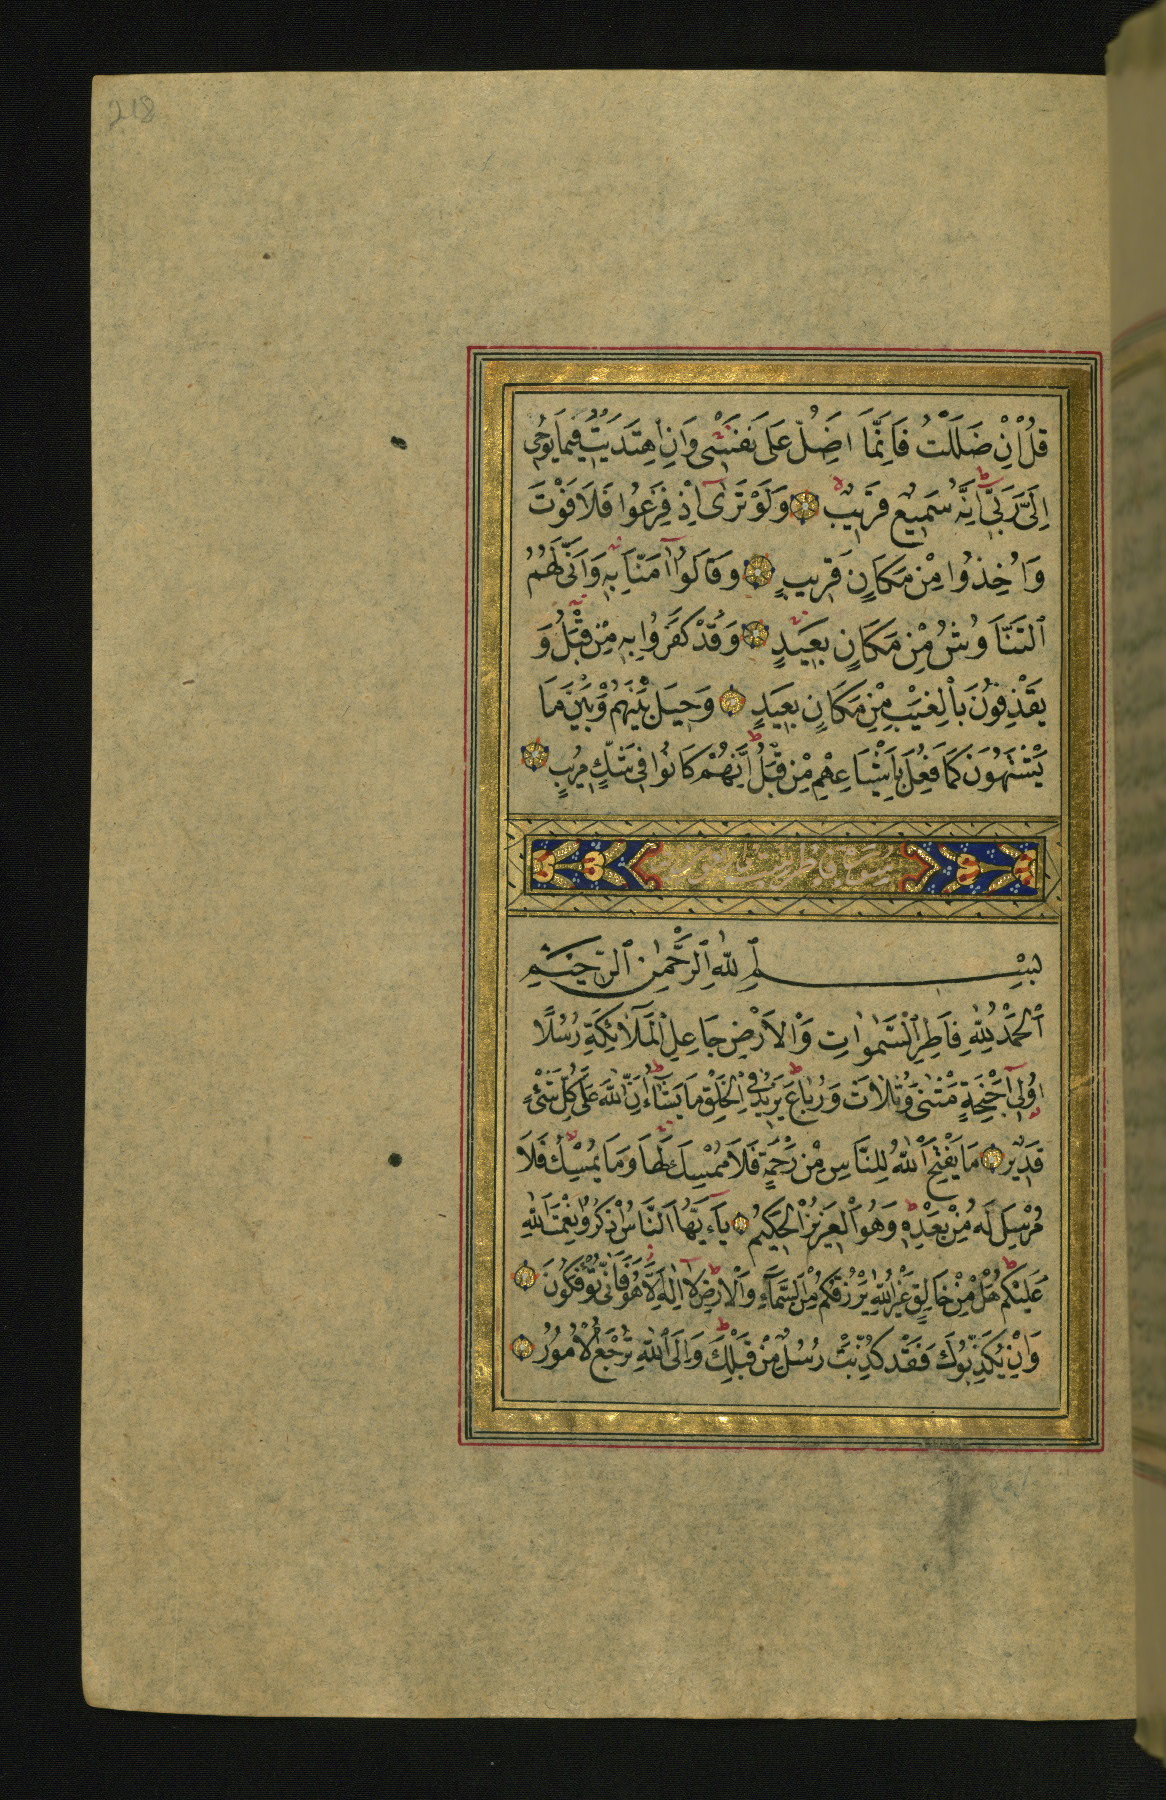 218
قُلْ اِنْ ضَلَلْتُ فَاِنَّمَا اَضِلُّ عَلٰى نَفْسٖى وَاِنِ اهْتَدَيْتُ فَبِمَا يُوحٖى
اِلَىَّ رَبّٖى اِنَّهُ سَمٖيعٌ قَرٖيبٌ وَلَوْ تَرٰٓى اِذْ فَزِعُوا فَلَا فَوْتَ
وَاُخِذُوا مِنْ مَكَانٍ قَرٖيبٍ وَقَالُوٓا اٰمَنَّا بِهٖ وَاَنّٰى لَهُمُ
التَّنَاوُشُ مِنْ مَكَانٍ بَعٖيدٍ وَقَدْ كَفَرُوا بِهٖ مِنْ قَبْلُ وَ
يَقْذِفُونَ بِالْغَيْبِ مِنْ مَكَانٍ بَعٖيدٍ وَحٖيلَ بَيْنَهُمْ وَبَيْنَ مَا
يَشْتَهُونَ كَمَا فُعِلَ بِاَشْيَاعِهِمْ مِنْ قَبْلُ اِنَّهُمْ كَانُوا فٖى شَكٍّ مُرٖيبٍ
بِسْمِ اللّٰهِ الرَّحْمٰنِ الرَّحٖيمِ
اَلْحَمْدُ لِلّٰهِ فَاطِرِ السَّمٰوَاتِ وَالْاَرْضِ جَاعِلِ الْمَلٰٓائِكَةِ رُسُلًا
اُولٖٓى اَجْنِحَةٍ مَثْنٰى وَثُلَاثَ وَرُبَاعَ يَزٖيدُ فِى الْخَلْقِ مَا يَشَاءُ اِنَّ اللّٰهَ عَلٰى كُلِّ شَىْءٍ
قَدٖيرٌ مَا يَفْتَحِ اللّٰهُ لِلنَّاسِ مِنْ رَحْمَةٍ فَلَا مُمْسِكَ لَهَا وَمَا يُمْسِكْ فَلَا
مُرْسِلَ لَهُ مِنْ بَعْدِهٖ وَهُوَ الْعَزٖيزُ الْحَكٖيمُ يَٓا اَيُّهَا النَّاسُ اذْكُرُوا نِعْمَتَ اللّٰهِ
عَلَيْكُمْ هَلْ مِنْ خَالِقٍ غَيْرُ اللّٰهِ يَرْزُقُكُمْ مِنَ السَّمَاءِ وَالْاَرْضِ لَٓا اِلٰهَ اِلَّا هُوَ فَاَنّٰى تُؤْفَكُونَ
وَاِنْ يُكَذِّبُوكَ فَقَدْ كُذِّبَتْ رُسُلٌ مِنْ قَبْلِكَ وَاِلَى اللّٰهِ تُرْجَعُ الْاُمُورُ